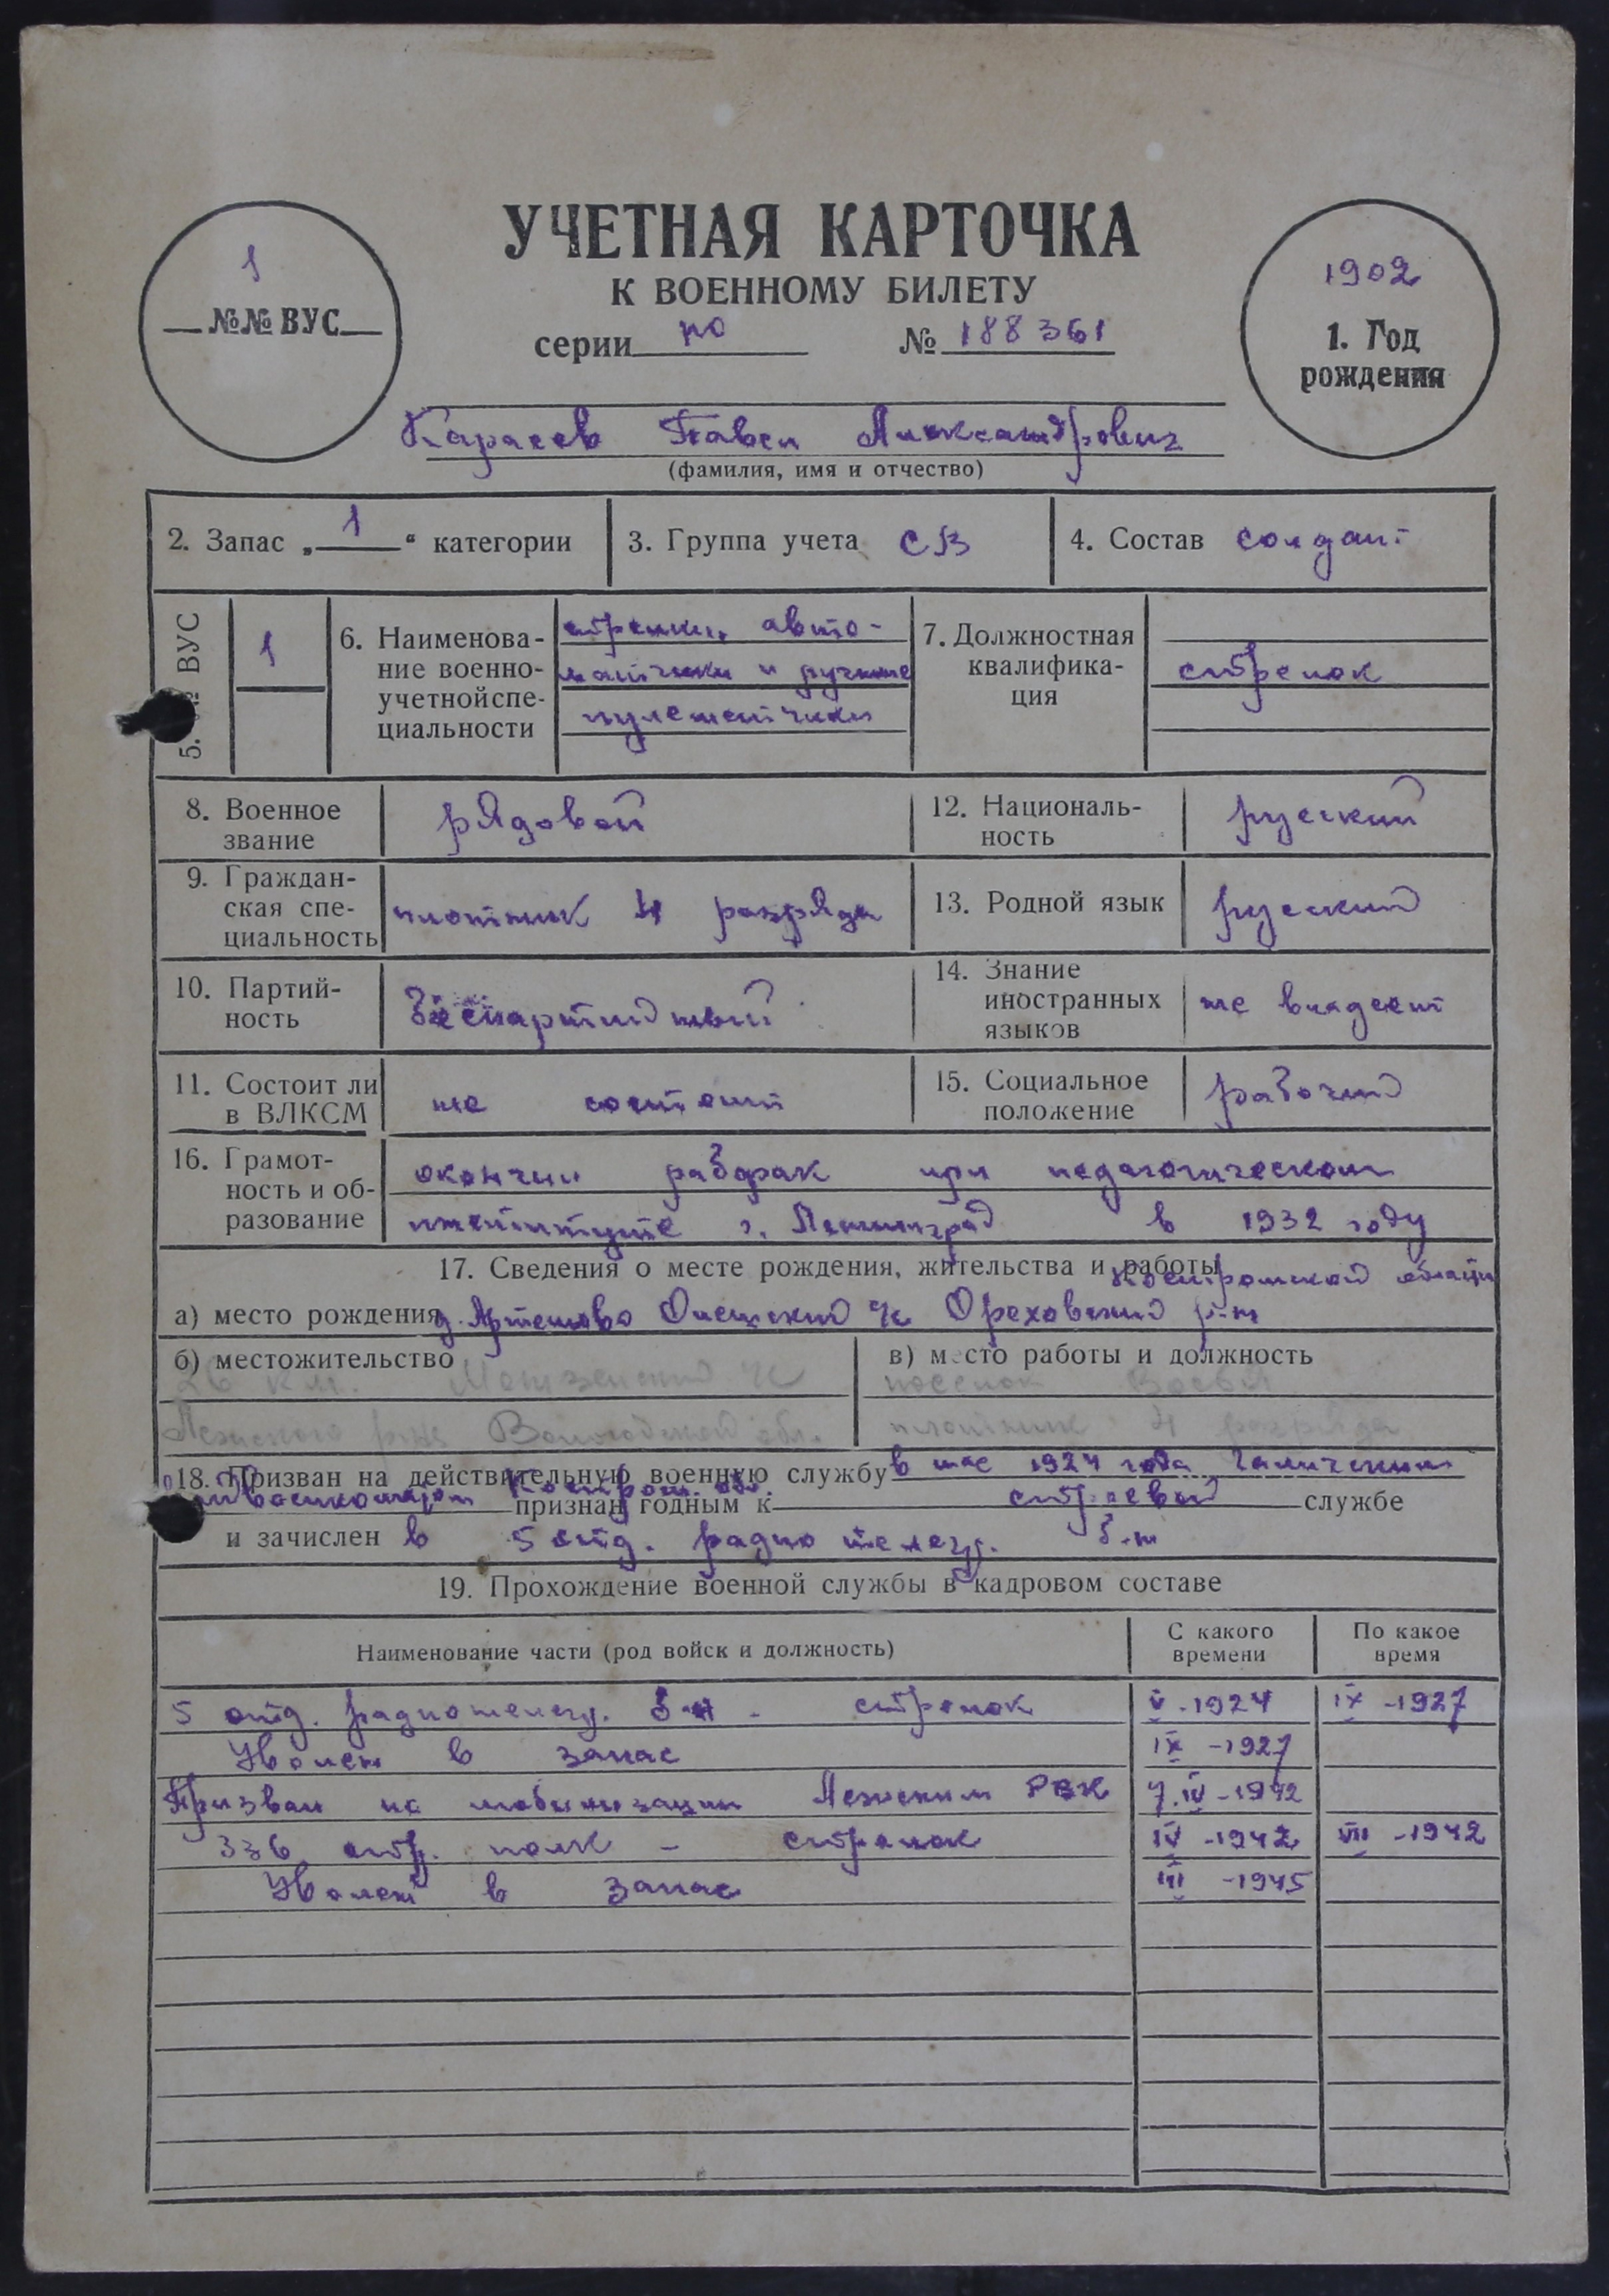 УЧЕТНАЯ КАРТОЧКА
К ВОЕННОМУ БИЛЕТУ
серии но № 188361
1
№№ ВУС
1902
1. Год
рождения
Карасев Павел Александрович
(фамилия, имя и отчество)
2. Запас „1“ категории
3. Группа учета СВ
4. Состав солдат
5. № ВУС
1
6. Наименова-
ние военно-
учетной спе-
циальности
стрелки, авто-
матчики и ручные
пулеметчики
7. Должностная
квалифика-
ция
стрелок
8. Военное
звание
рядовой
12. Националь-
ность
русский
9. Граждан-
ская спе-
циальность
плотник 4 разряда
13. Родной язык
русский
10. Партий-
ность
беспартийный
14. Знание
иностранных
языков
не владеет
11. Состоит ли
в ВЛКСМ
не состоит
15. Социальное
положение
рабочий
16. Грамот-
ность и об-
разование
окончил рабфак при педагогическом
институте г. Ленинград в 1932 году
17. Сведения о месте рождения, жительства и работы
Костромской области
а) место рождения д. Артемово с/с Ореховский р-н
б) местожительство
26 км. с/с
Лежского р-на Вологодской обл.
в) место работы и должность
поселок
плотник 4 разряда
18. Призван на действительную военную службу в мае 1924 года Галичским
военкоматом Костром. обл. признан годным к строевой службе
и зачислен в 5 отд. радио телегр. б-н
19. Прохождение военной службы в кадровом составе
Наименование части (род войск и должность)
С какого
времени
По какое
время
5 отд. радиотелегр. б-н - стрелок V-1924 IX-1927
Уволен в запас IX-1927
Призван по мобилизации Лежским РВК 7.IV-1942
336 стр. полк - стрелок IV-1942 VII-1942
Уволен в запас III-1945